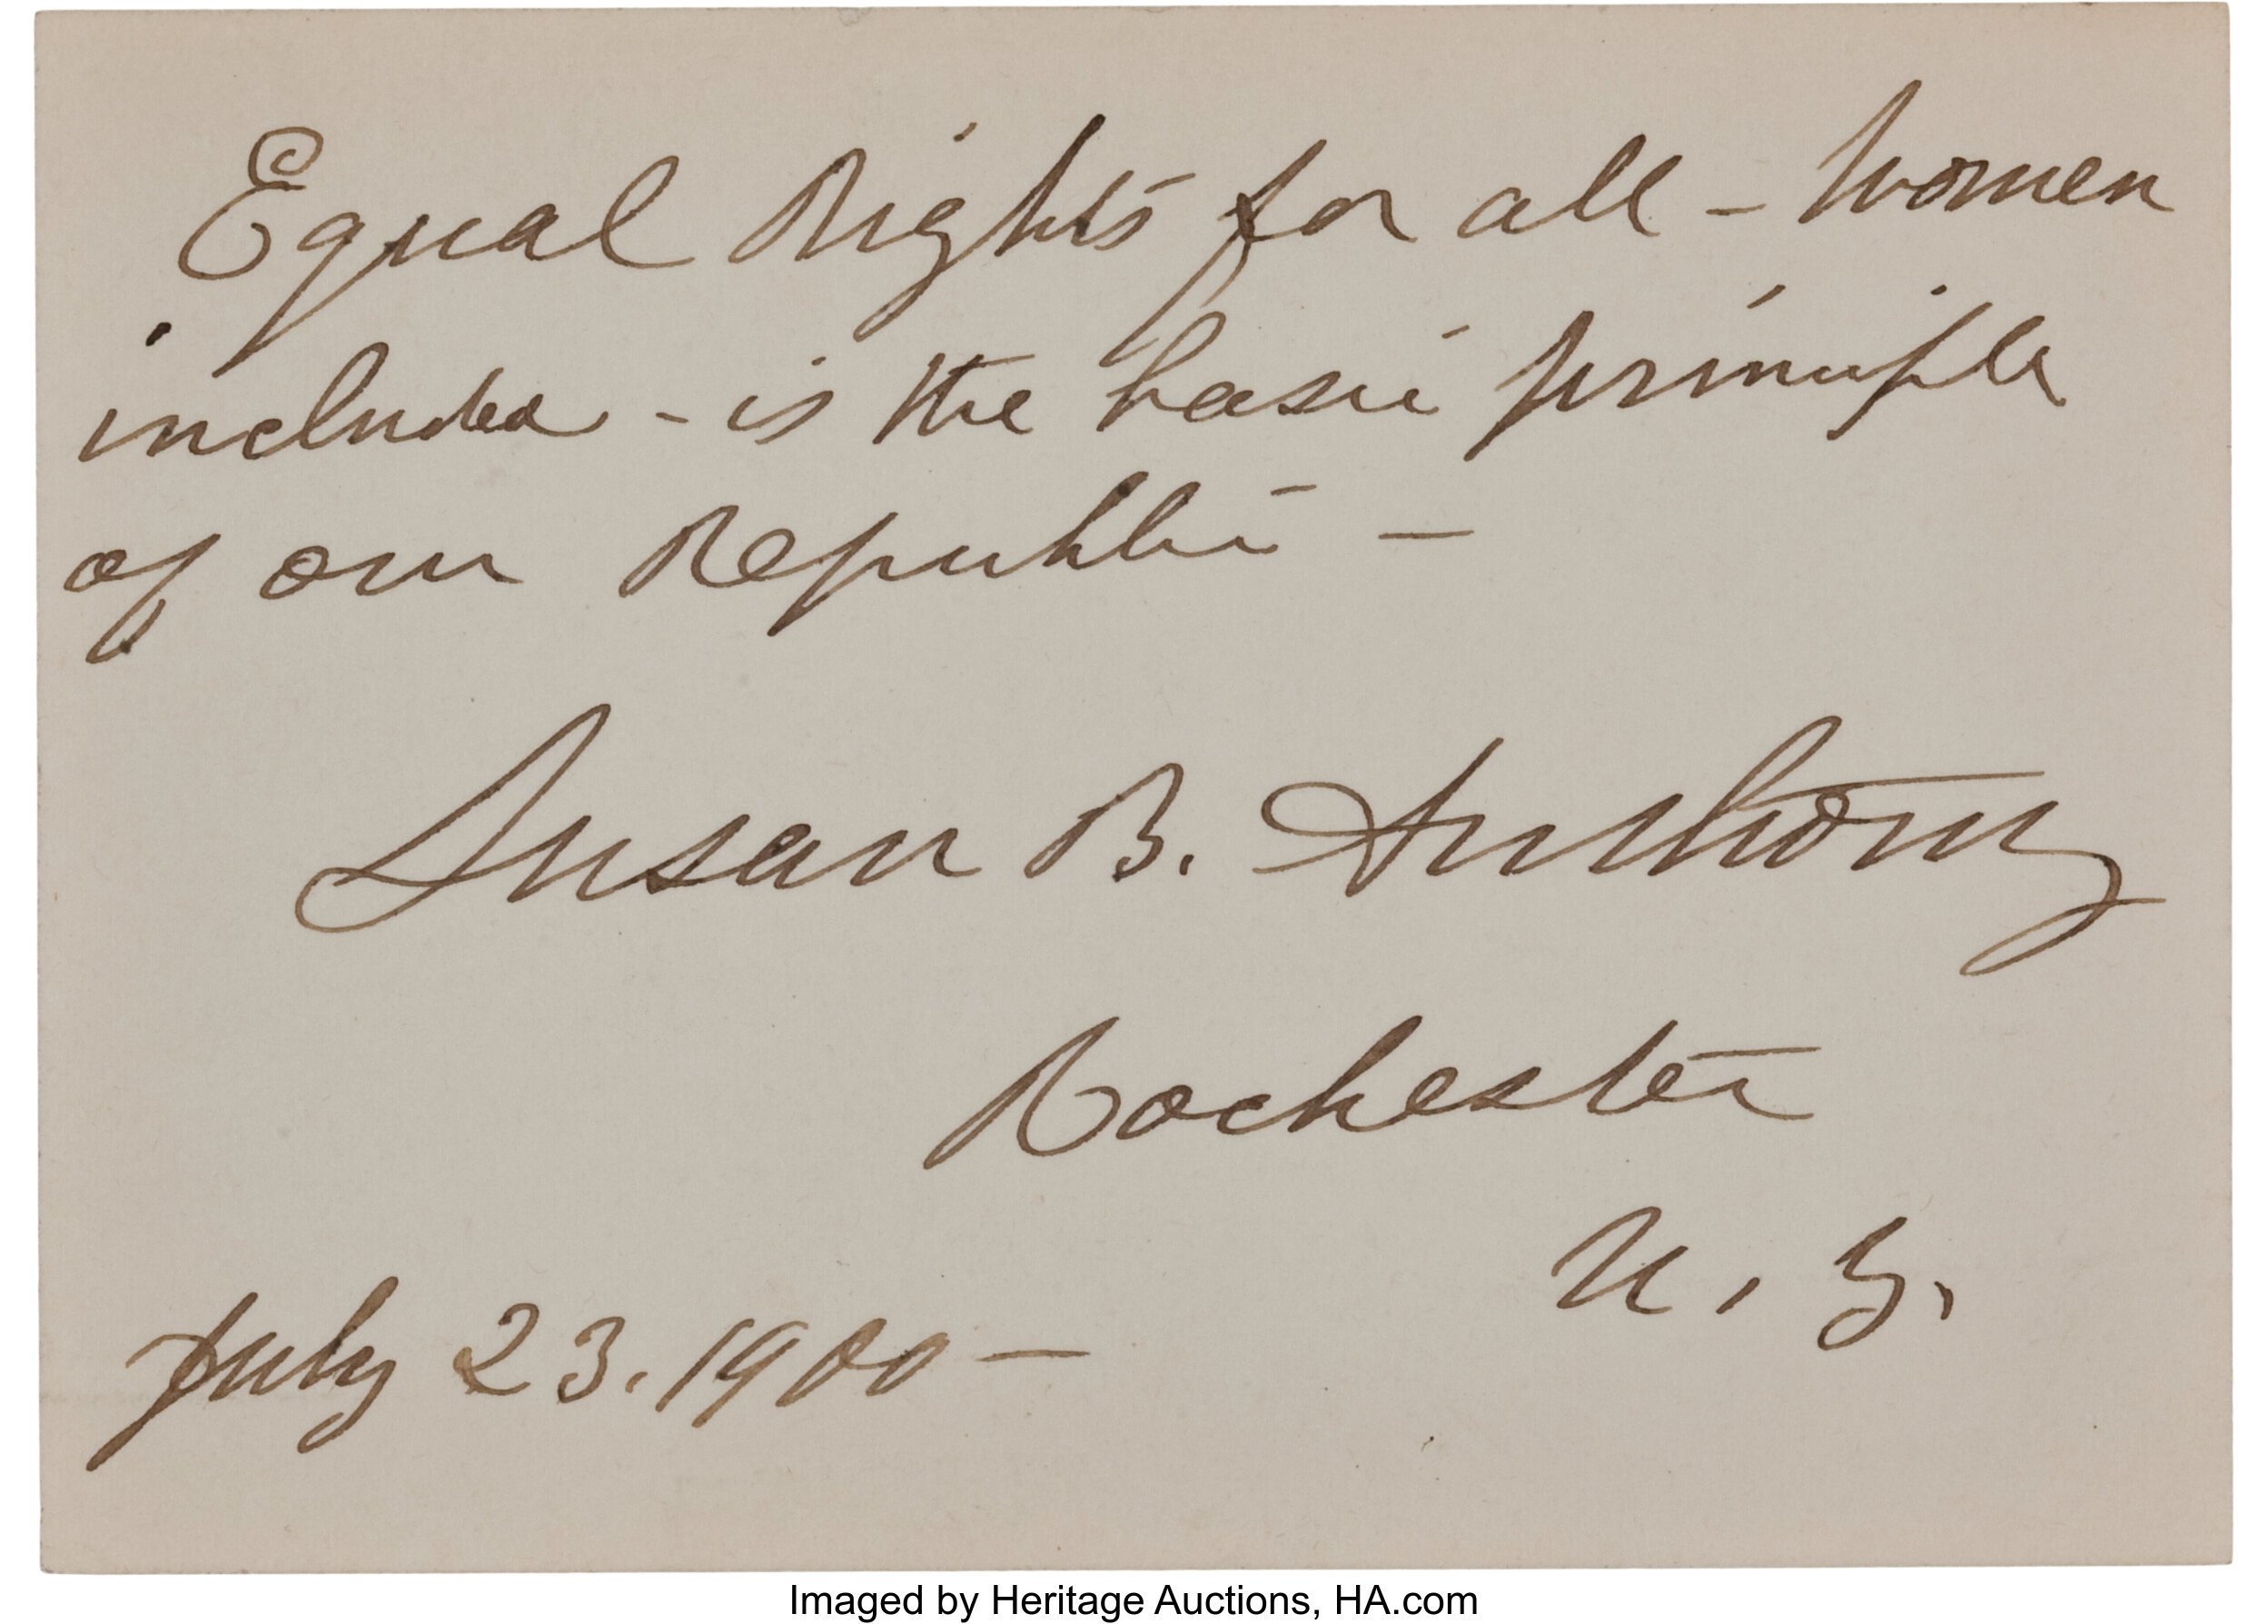 Equal Rights for all – women
included – is the basic principle
of our Republic –
Susan B. Anthony
Rochester
N. Y.
July 23. 1900 –
Imaged by Heritage Auctions, HA.com